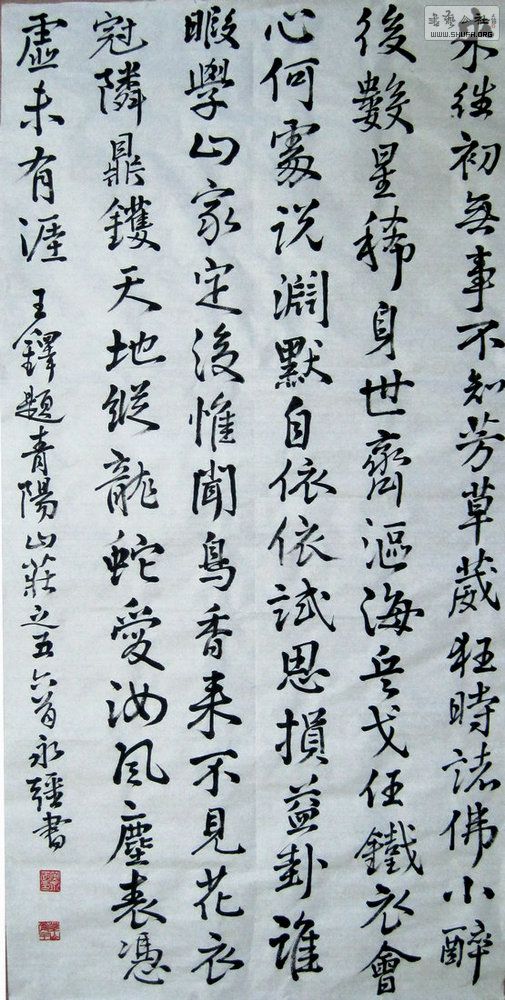 書藝公社
WWW.SHUFA.ORG
來初無事不知芳草葳狂時諸佛小醉
後數星稀身世齊漚海兵戈任鐵衣會
心何處说淵默自依依試思損益卦誰
暇學山家定後惟聞鳥香来不見花衣
冠隣鼎鑊天地縱龍蛇愛汝風塵表憑
虛未有涯 王鐸題青陽山莊之五六首永强書